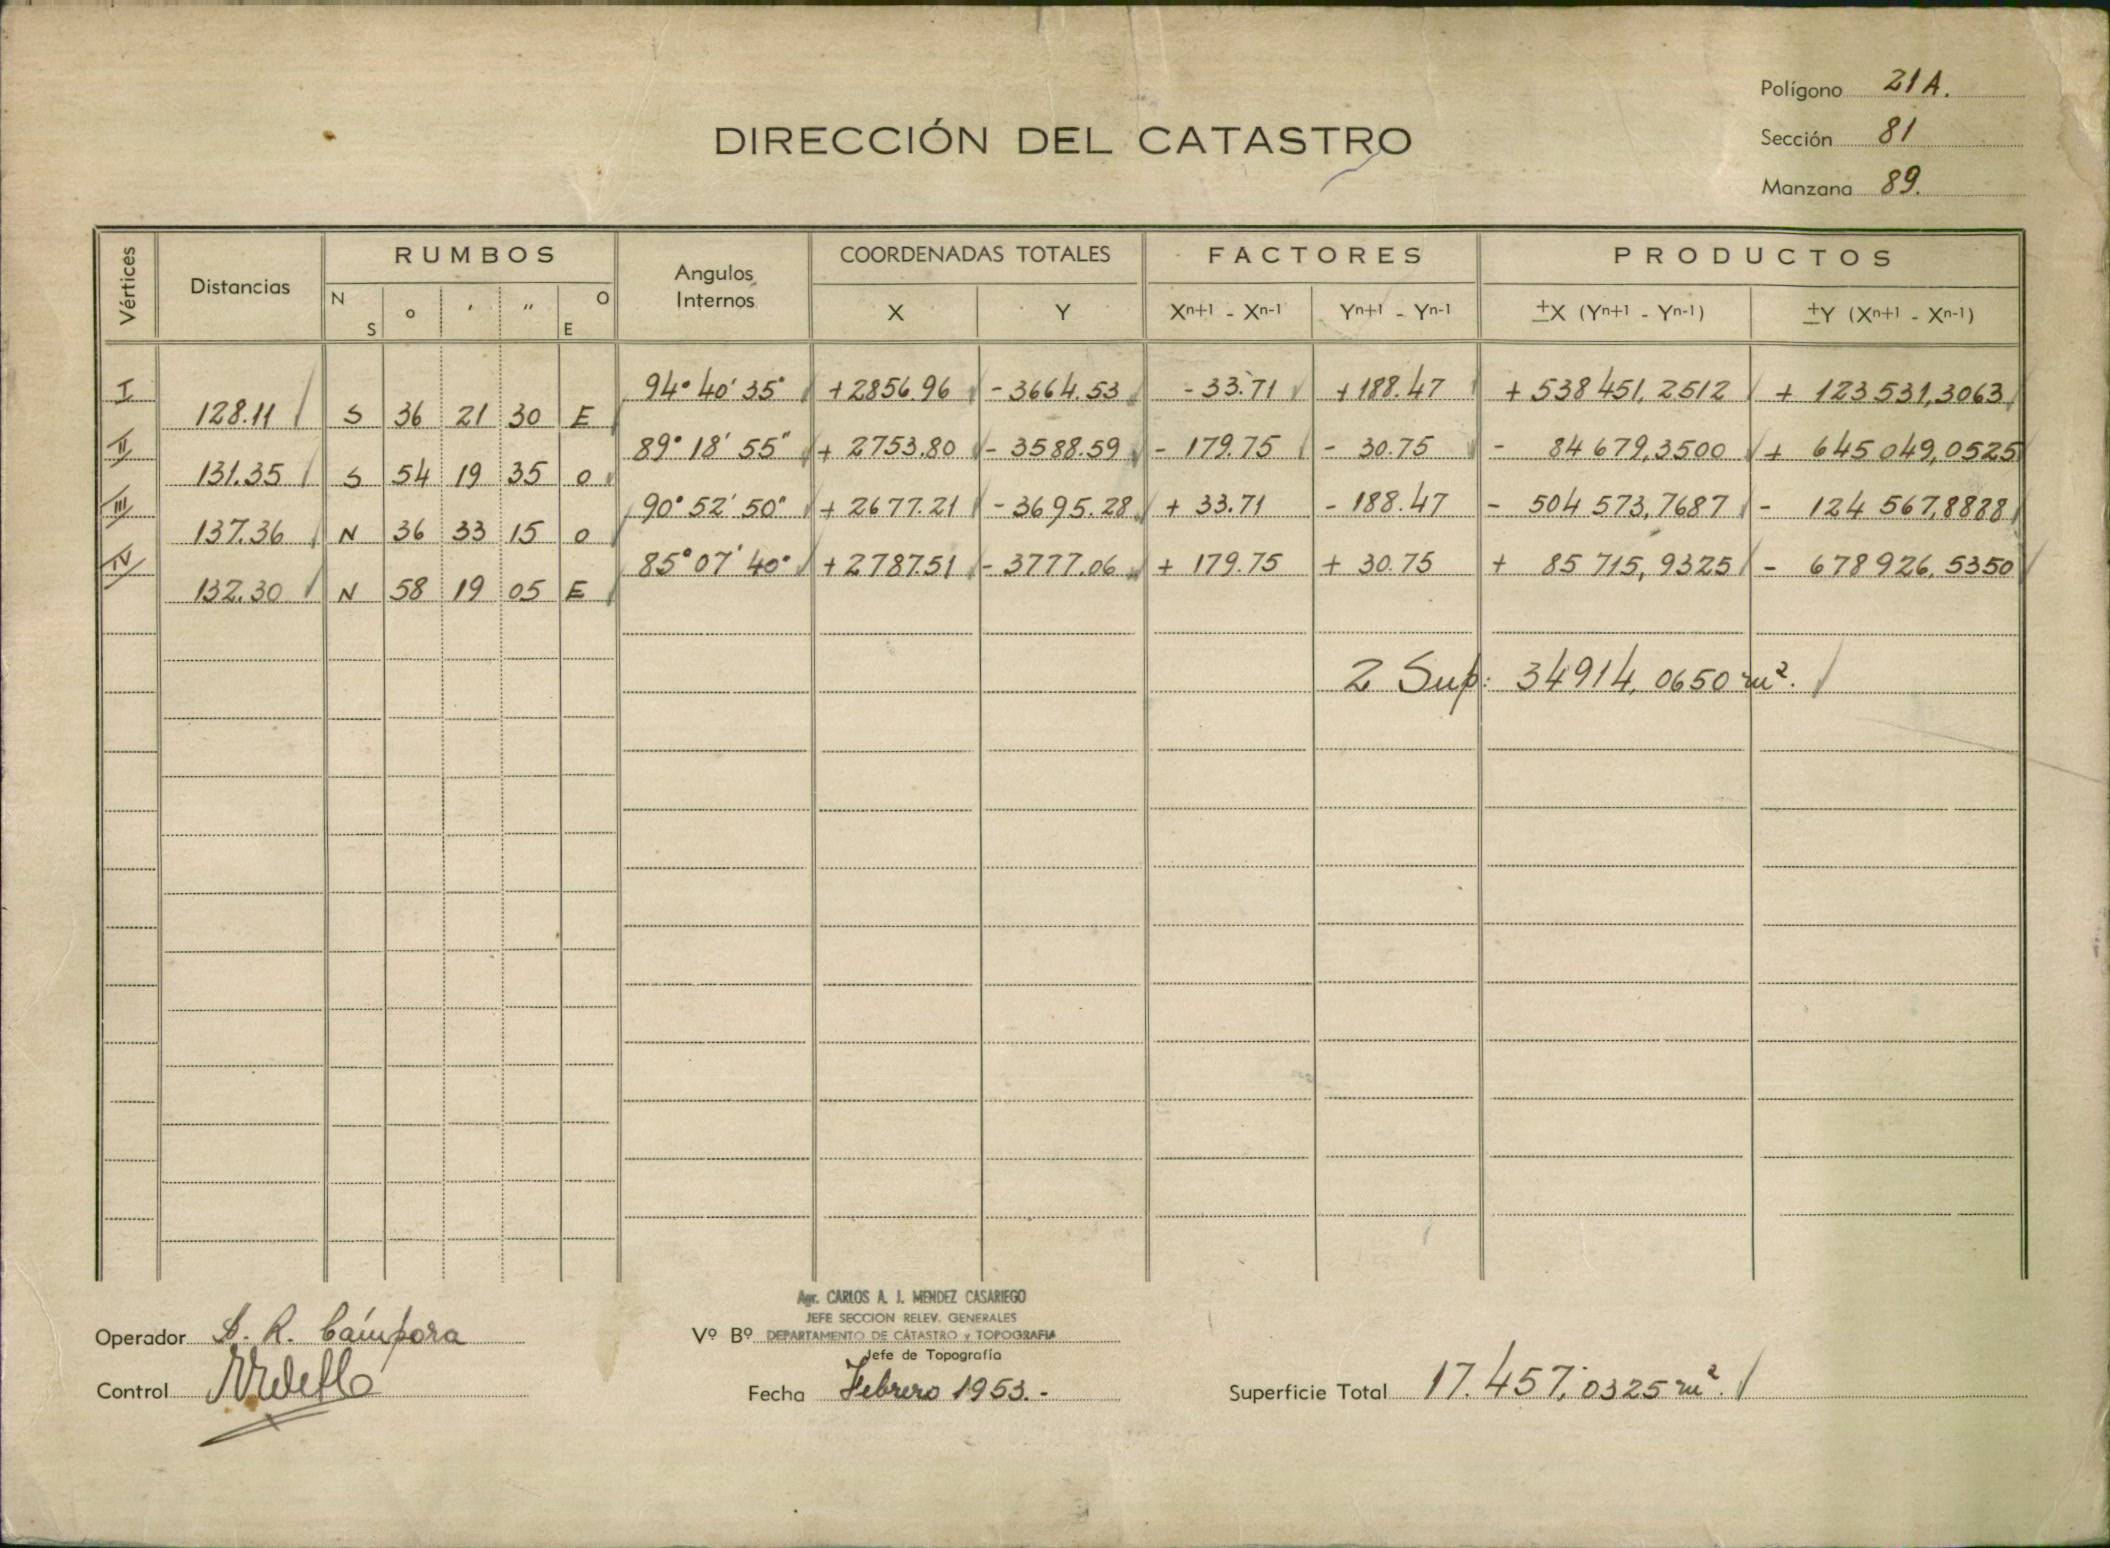 Polígono 21A.
DIRECCIÓN DEL CATASTRO
Sección 81
Manzana 89.
Vértices Distancias RUMBOS Angulos Internos COORDENADAS TOTALES FACTORES PRODUCTOS
N S ° ' " O E X Y Xn+1 - Xn-1 Yn+1 - Yn-1 ±X (Yn+1 - Yn-1) ±Y (Xn+1 - Xn-1)
I 94° 40' 35" +2856.96 -3664.53 -33.71 +188.47 +538451,2512 + 123531,3063
128.11 S 36 21 30 E
II 89° 18' 55" + 2753.80 - 3588.59 - 179.75 - 30.75 - 84679,3500 + 645049,0525
131.35 S 54 19 35 O
III 90° 52' 50" + 2677.21 -3695.28 + 33.71 - 188.47 - 504573,7687 - 124567,8888
137.36 N 36 33 15 O
IV 85° 07' 40" +2787.51 -3777.06 + 179.75 + 30.75 + 85715,9325 - 678926,5350
132.30 N 58 19 05 E
2 Sup: 34914,0650 m².
Agr. CARLOS A. J. MENDEZ CASARIEGO
JEFE SECCION RELEV. GENERALES
Operador A. R. Cámpora Vº Bº DEPARTAMENTO DE CATASTRO y TOPOGRAFIA
Jefe de Topografía
Control Fecha Febrero 1953.- Superficie Total 17.457,0325 m².